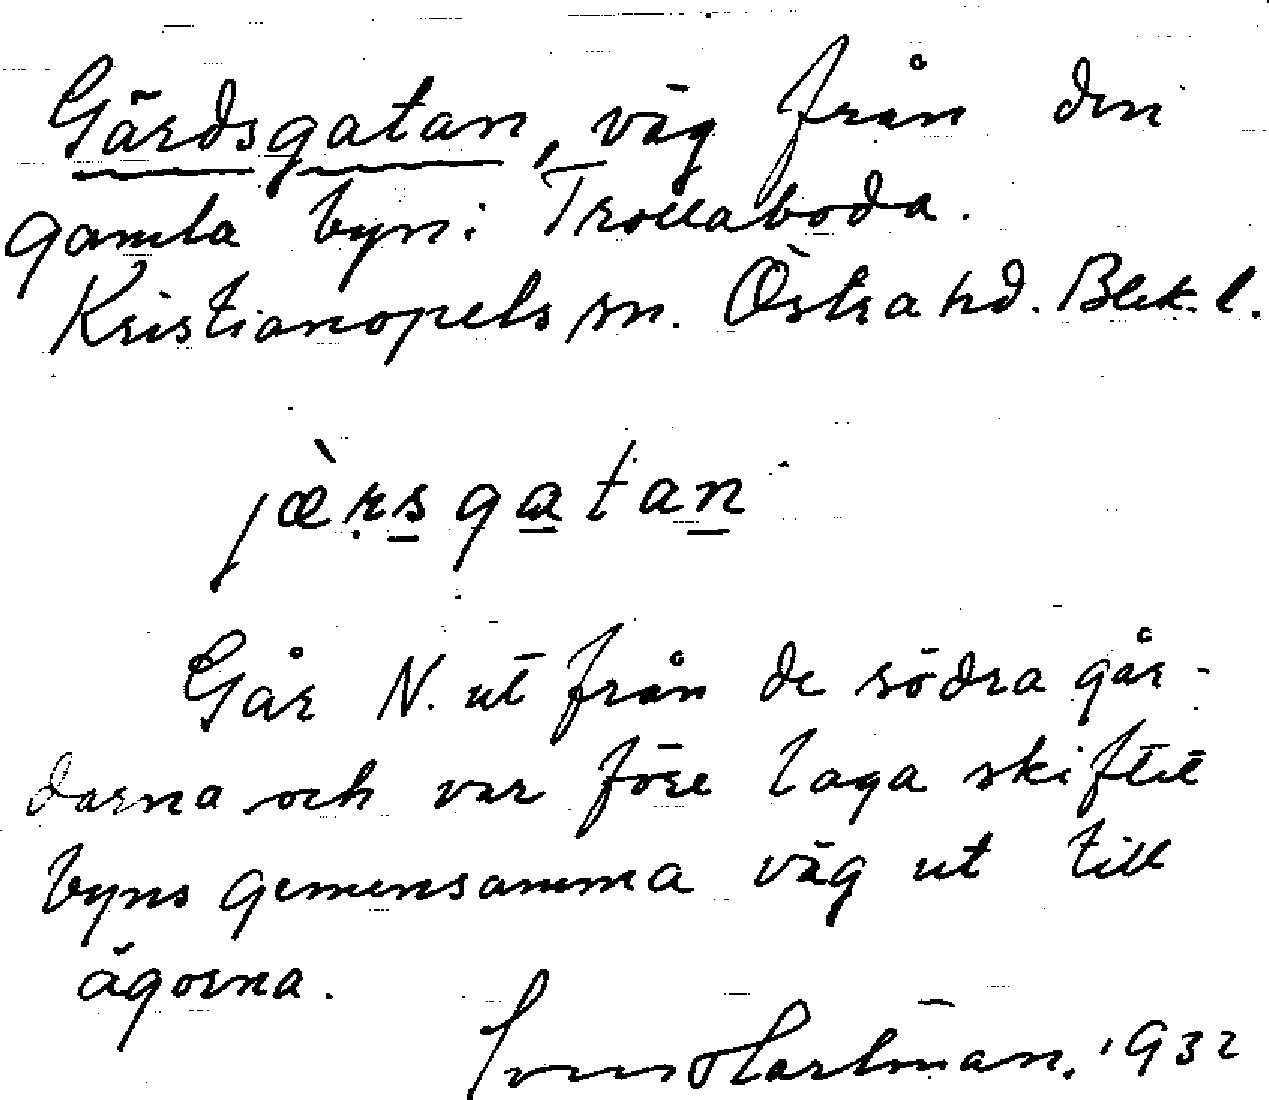 Gärdsgatan, väg från den
gamla byn i Trollaboda.
Kristianopels sn. Östra hd. Blek. l.
jæ̀rsgatan
Går N. ut från de södra går-
darna och var före laga skiftet
byns gemensamma väg ut till
ägorna.
Sven Hartman. 1932